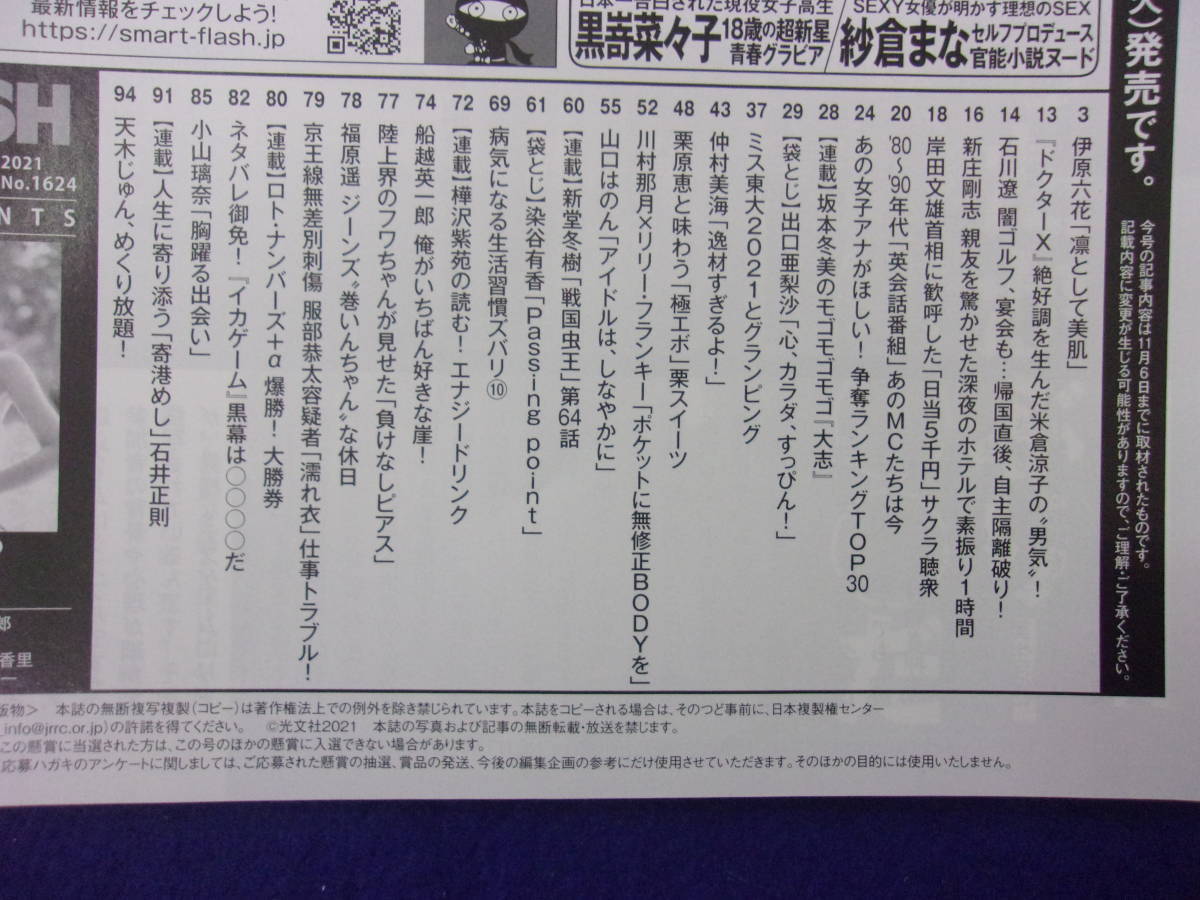 最新情報をチェックしよう!
https://smart-flash.jp
日本一告白された現役女子高生
黒嵜菜々子
18歳の超新星
青春グラビア
SEXY女優が明かす理想のSEX
紗倉まな
セルフプロデュース
官能小説ヌード
発売です。
今号の記事内容は11月6日までに取材されたものです。
記載内容に変更が生じる可能性がありますので、ご理解・ご了承ください。
SH
2021
No.1624
NTS
3 伊原六花「凛として美肌」
13 『ドクターX』絶好調を生んだ米倉涼子の〝男気〟!
14 石川遼 闇ゴルフ、宴会も…帰国直後、自主隔離破り!
16 新庄剛志 親友を驚かせた深夜のホテルで素振り1時間
18 岸田文雄首相に歓呼した「日当5千円」サクラ聴衆
20 '80〜'90年代「英会話番組」あのMCたちは今
24 あの女子アナがほしい! 争奪ランキングTOP30
28 【連載】坂本冬美のモゴモゴモゴ『大志』
29 【袋とじ】出口亜梨沙「心、カラダ、すっぴん!」
37 ミス東大2021とグランピング
43 仲村美海「逸材すぎるよ!」
48 栗原恵と味わう「極エボ」栗スイーツ
52 川村那月×リリー・フランキー「ポケットに無修正BODYを」
55 山口はのん「アイドルは、しなやかに」
60 【連載】新堂冬樹「戦国虫王」第64話
61 【袋とじ】染谷有香「Passing point」
69 病気になる生活習慣ズバリ⑩
72 【連載】樺沢紫苑の読む! エナジードリンク
74 船越英一郎 俺がいちばん好きな崖!
77 陸上界のフワちゃんが見せた「負けなしピアス」
78 福原遥 ジーンズ〝巻いんちゃん〟な休日
79 京王線無差別刺傷 服部恭太容疑者「濡れ衣」仕事トラブル!
80 【連載】ロト・ナンバーズ+α 爆勝! 大勝券
82 ネタバレ御免! 『イカゲーム』黒幕は○○○○だ
85 小山璃奈「胸躍る出会い」
91 【連載】人生に寄り添う「寄港めし」石井正則
94 天木じゅん、めくり放題!
郎
香里
版物> 本誌の無断複写複製(コピー)は著作権法上での例外を除き禁じられています。本誌をコピーされる場合は、そのつど事前に、日本複製権センター
_info@jrrc.or.jp)の許諾を得てください。 ©光文社2021 本誌の写真および記事の無断転載・放送を禁じます。
この懸賞に当選された方は、この号のほかの懸賞に入選できない場合があります。
応募ハガキのアンケートに関しましては、ご応募された懸賞の抽選、賞品の発送、今後の編集企画の参考にだけ使用させていただきます。そのほかの目的には使用いたしません。